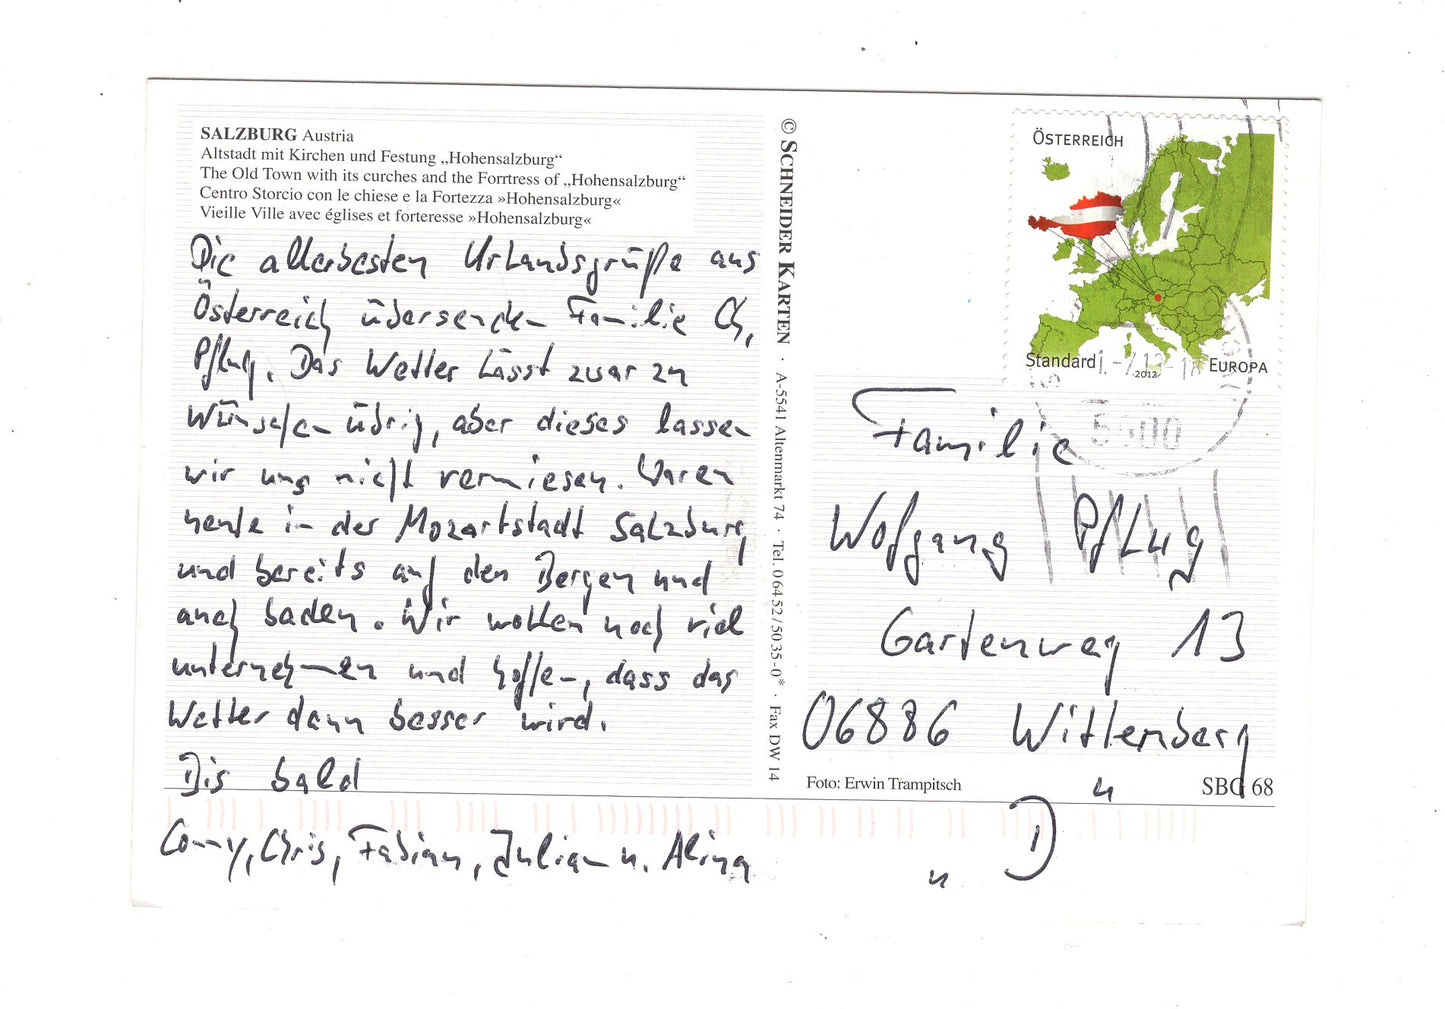 SALZBURG Austria
Altstadt mit Kirchen und Festung „Hohensalzburg“
The Old Town with its curches and the Forrtress of „Hohensalzburg“
Centro Storcio con le chiese e la Fortezza »Hohensalzburg«
Vieille Ville avec églises et forteresse »Hohensalzburg«
Die allerbesten Urlaubsgrüße aus
Österreich übersenden Familie Ch.
Pflug. Das Wetter lässt zwar zu
Wünschen übrig, aber dieses lassen
wir uns nicht vermiesen. Waren
heute in der Mozartstadt Salzburg
und bereits auf den Bergen und
auch baden. Wir wollen noch viel
unternehmen und hoffen, dass das
Wetter dann besser wird.
Bis bald
Conny, Chris, Fabian, Julian u. Alina
© SCHNEIDER KARTEN · A-5541 Altenmarkt 74 · Tel. 06452/5035-0* · Fax DW 14
ÖSTERREICH
Standard
2012
EUROPA
Familie
Wolfgang Pflug
Gartenweg 13
06886 Wittenberg
Foto: Erwin Trampitsch
SBG 68
" D "